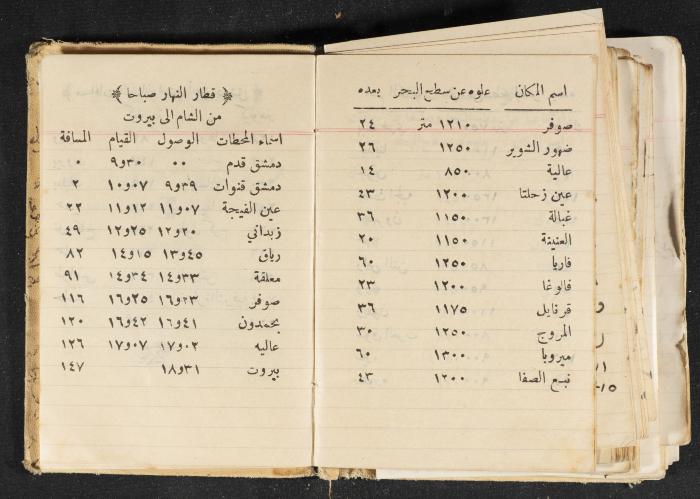 اسم المكان علوه عن سطح البحر بعده
صوفر ١٢١٠ متر ٢٤
ضهور الشوير ١٢٥٠ ٢٦
عالية ٨٥٠ ١٤
عين زحلتا ١٢٠٠ ٤٣
غبالة ١١٥٠ ٣٦
١١٥٠ ٢٠
فاريا ١٢٥٠ ٦٠
فالوغا ١٢٠٠ ٢٣
قرنايل ١١٧٥ ٣٦
المروج ١٢٥٠ ٣٠
ميروبا ١٣٠٠ ٦٠
نبع الصفا ١٢٠٠ ٤٣
﴿ قطار النهار صباحا ﴾
من الشام الى بيروت
اسماء المحطات الوصول القيام المسافة
دمشق قدم ٠٠ ٣٠و٩ ٠
دمشق قنوات ٣٩و٩ ٠٧و١٠ ٢
عين الفيجة ٠٧و١١ ١٢و١١ ٢٢
زبداني ٢٠و١٢ ٢٥و١٢ ٤٩
رياق ٤٥و١٣ ١٥و١٤ ٨٢
معلقة ٣٣و١٤ ٣٤و١٤ ٩١
صوفر ٢٣و١٦ ٢٥و١٦ ١١٦
بحمدون ٤١و١٦ ٤٢و١٦ ١٢٠
عاليه ٠٢و١٧ ٠٧و١٧ ١٢٦
بيروت ٣١و١٨ ١٤٧